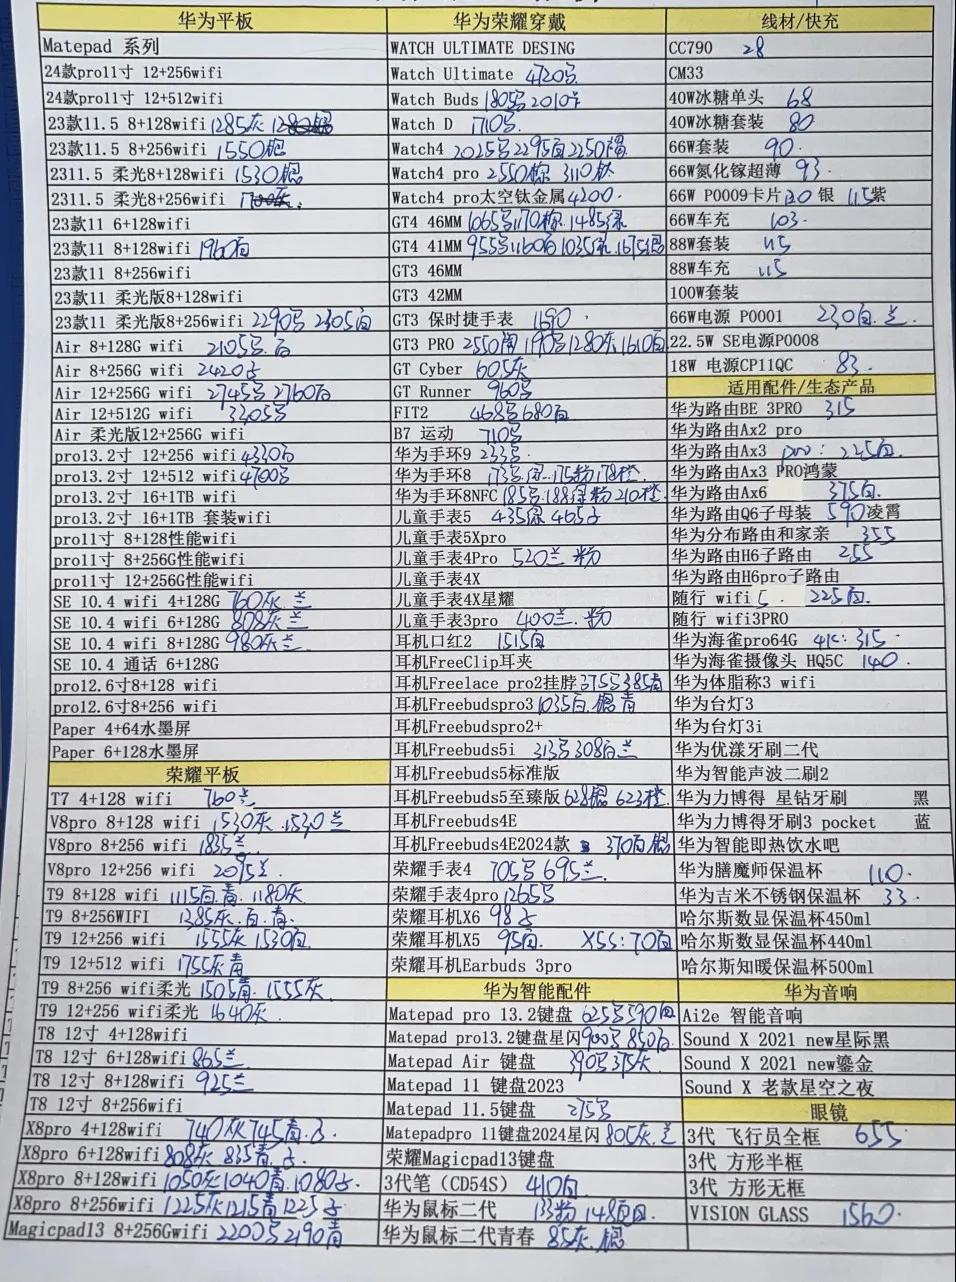 华为平板
Matepad 系列
24款pro11寸 12+256wifi
24款pro11寸 12+512wifi
23款11.5 8+128wifi 1285灰
23款11.5 8+256wifi 1550银
2311.5 柔光8+128wifi 1530银
2311.5 柔光8+256wifi
23款11 6+128wifi
23款11 8+128wifi 1960白
23款11 8+256wifi
23款11 柔光版8+128wifi
23款11 柔光版8+256wifi 2290号 2305白
Air 8+128G wifi 2105号.白
Air 8+256G wifi 2420号
Air 12+256G wifi 2745号 2760白
Air 12+512G wifi 3305号
Air 柔光版12+256G wifi
pro13.2寸 12+256 wifi 4330白
pro13.2寸 12+512 wifi 4700号
pro13.2寸 16+1TB wifi
pro13.2寸 16+1TB 套装wifi
pro11寸 8+128性能wifi
pro11寸 8+256G性能wifi
pro11寸 12+256G性能wifi
SE 10.4 wifi 4+128G 760灰.兰
SE 10.4 wifi 6+128G 808灰.兰
SE 10.4 wifi 8+128G 980灰.兰
SE 10.4 通话 6+128G
pro12.6寸8+128 wifi
pro12.6寸8+256 wifi
Paper 4+64水墨屏
Paper 6+128水墨屏
荣耀平板
T7 4+128 wifi 760兰
V8pro 8+128 wifi 1530灰.1530兰
V8pro 8+256 wifi 1835兰
V8pro 12+256 wifi 2095兰
T9 8+128 wifi 1115白.青.1180灰
T9 8+256WIFI 1385灰.白.青.
T9 12+256 wifi 1555灰 1530白
T9 12+512 wifi 1755灰青
T9 8+256 wifi柔光 1505青.1555灰
T9 12+256 wifi柔光 1640灰.
T8 12寸 4+128wifi
T8 12寸 6+128wifi 865兰
T8 12寸 8+128wifi 925兰
T8 12寸 8+256wifi
X8pro 4+128wifi 740灰745青.子.
X8pro 6+128wifi 808灰 835青.子
X8pro 8+128wifi 1050灰1040青.1080子.
X8pro 8+256wifi 1225灰1215青1225子
Magicpad13 8+256Gwifi 2200号2190青
华为荣耀穿戴
WATCH ULTIMATE DESING
Watch Ultimate 4720号
Watch Buds 1805号2010
Watch D 1710号.
Watch4 2025号2295白2250
Watch4 pro 2550棕.3110钛
Watch4 pro太空钛金属4200.
GT4 46MM 1065号1170棕.1485绿
GT4 41MM 955号1160白1035绿.1675银
GT3 46MM
GT3 42MM
GT3 保时捷手表 1690
GT3 PRO 2550陶1190号1280灰1610白
GT Cyber 605灰
GT Runner 960号
FIT2 468号680白
B7 运动 710号
华为手环9 233号.
华为手环8 173号.绿.175粉178橙
华为手环8NFC 185号.188绿粉210橙
儿童手表5 435绿 465子
儿童手表5Xpro
儿童手表4Pro 520兰 粉
儿童手表4X
儿童手表4X星耀
儿童手表3pro 400兰.粉
耳机口红2 1515白
耳机FreeClip耳夹
耳机Freelace pro2挂脖375号385白
耳机Freebudspro3 1035白.银青
耳机Freebudspro2+
耳机Freebuds5i 313号308白兰
耳机Freebuds5标准版
耳机Freebuds5至臻版628银 623橙
耳机Freebuds4E
耳机Freebuds4E2024款 370白银
荣耀手表4 705号695兰.
荣耀手表4pro 1265号
荣耀耳机X6 98子
荣耀耳机X5 95白. X5S:70白
荣耀耳机Earbuds 3pro
华为智能配件
Matepad pro 13.2键盘 625号590白
Matepad pro13.2键盘星闪900号850白
Matepad Air 键盘 390号375灰
Matepad 11 键盘2023
Matepad 11.5键盘 275号
Matepadpro 11键盘2024星闪 805灰.兰
荣耀Magicpad13键盘
3代笔（CD54S） 410白
华为鼠标二代 133粉 148白.
华为鼠标二代青春 85灰.银
线材/快充
CC790 28
CM33
40W冰糖单头 68
40W冰糖套装 80
66W套装 90.
66W氮化镓超薄 93.
66W P0009卡片120 银 115紫
66W车充 103.
88W套装 115
88W车充 115
100W套装
66W电源 P0001 230白.兰
22.5W SE电源P0008
18W 电源CP11QC 83.
适用配件/生态产品
华为路由BE 3PRO 315
华为路由Ax2 pro
华为路由Ax3 pro: 225白.
华为路由Ax3 PRO鸿蒙
华为路由Ax6 375白.
华为路由Q6子母装 590凌霄
华为分布路由和家亲 355
华为路由H6子路由 255
华为路由H6pro子路由
随行 wifi5. 225白.
随行 wifi3PRO
华为海雀pro64G 4K:315.
华为海雀摄像头 HQ5C 140.
华为体脂称3 wifi
华为台灯3
华为台灯3i
华为优漾牙刷二代
华为智能声波二刷2
华为力博得 星钻牙刷 黑
华为力博得牙刷3 pocket 蓝
华为智能即热饮水吧
华为膳魔师保温杯 110.
华为吉米不锈钢保温杯 33.
哈尔斯数显保温杯450ml
哈尔斯数显保温杯440ml
哈尔斯知暖保温杯500ml
华为音响
Ai2e 智能音响
Sound X 2021 new星际黑
Sound X 2021 new鎏金
Sound X 老款星空之夜
眼镜
3代 飞行员全框 655
3代 方形半框
3代 方形无框
VISION GLASS 1560.